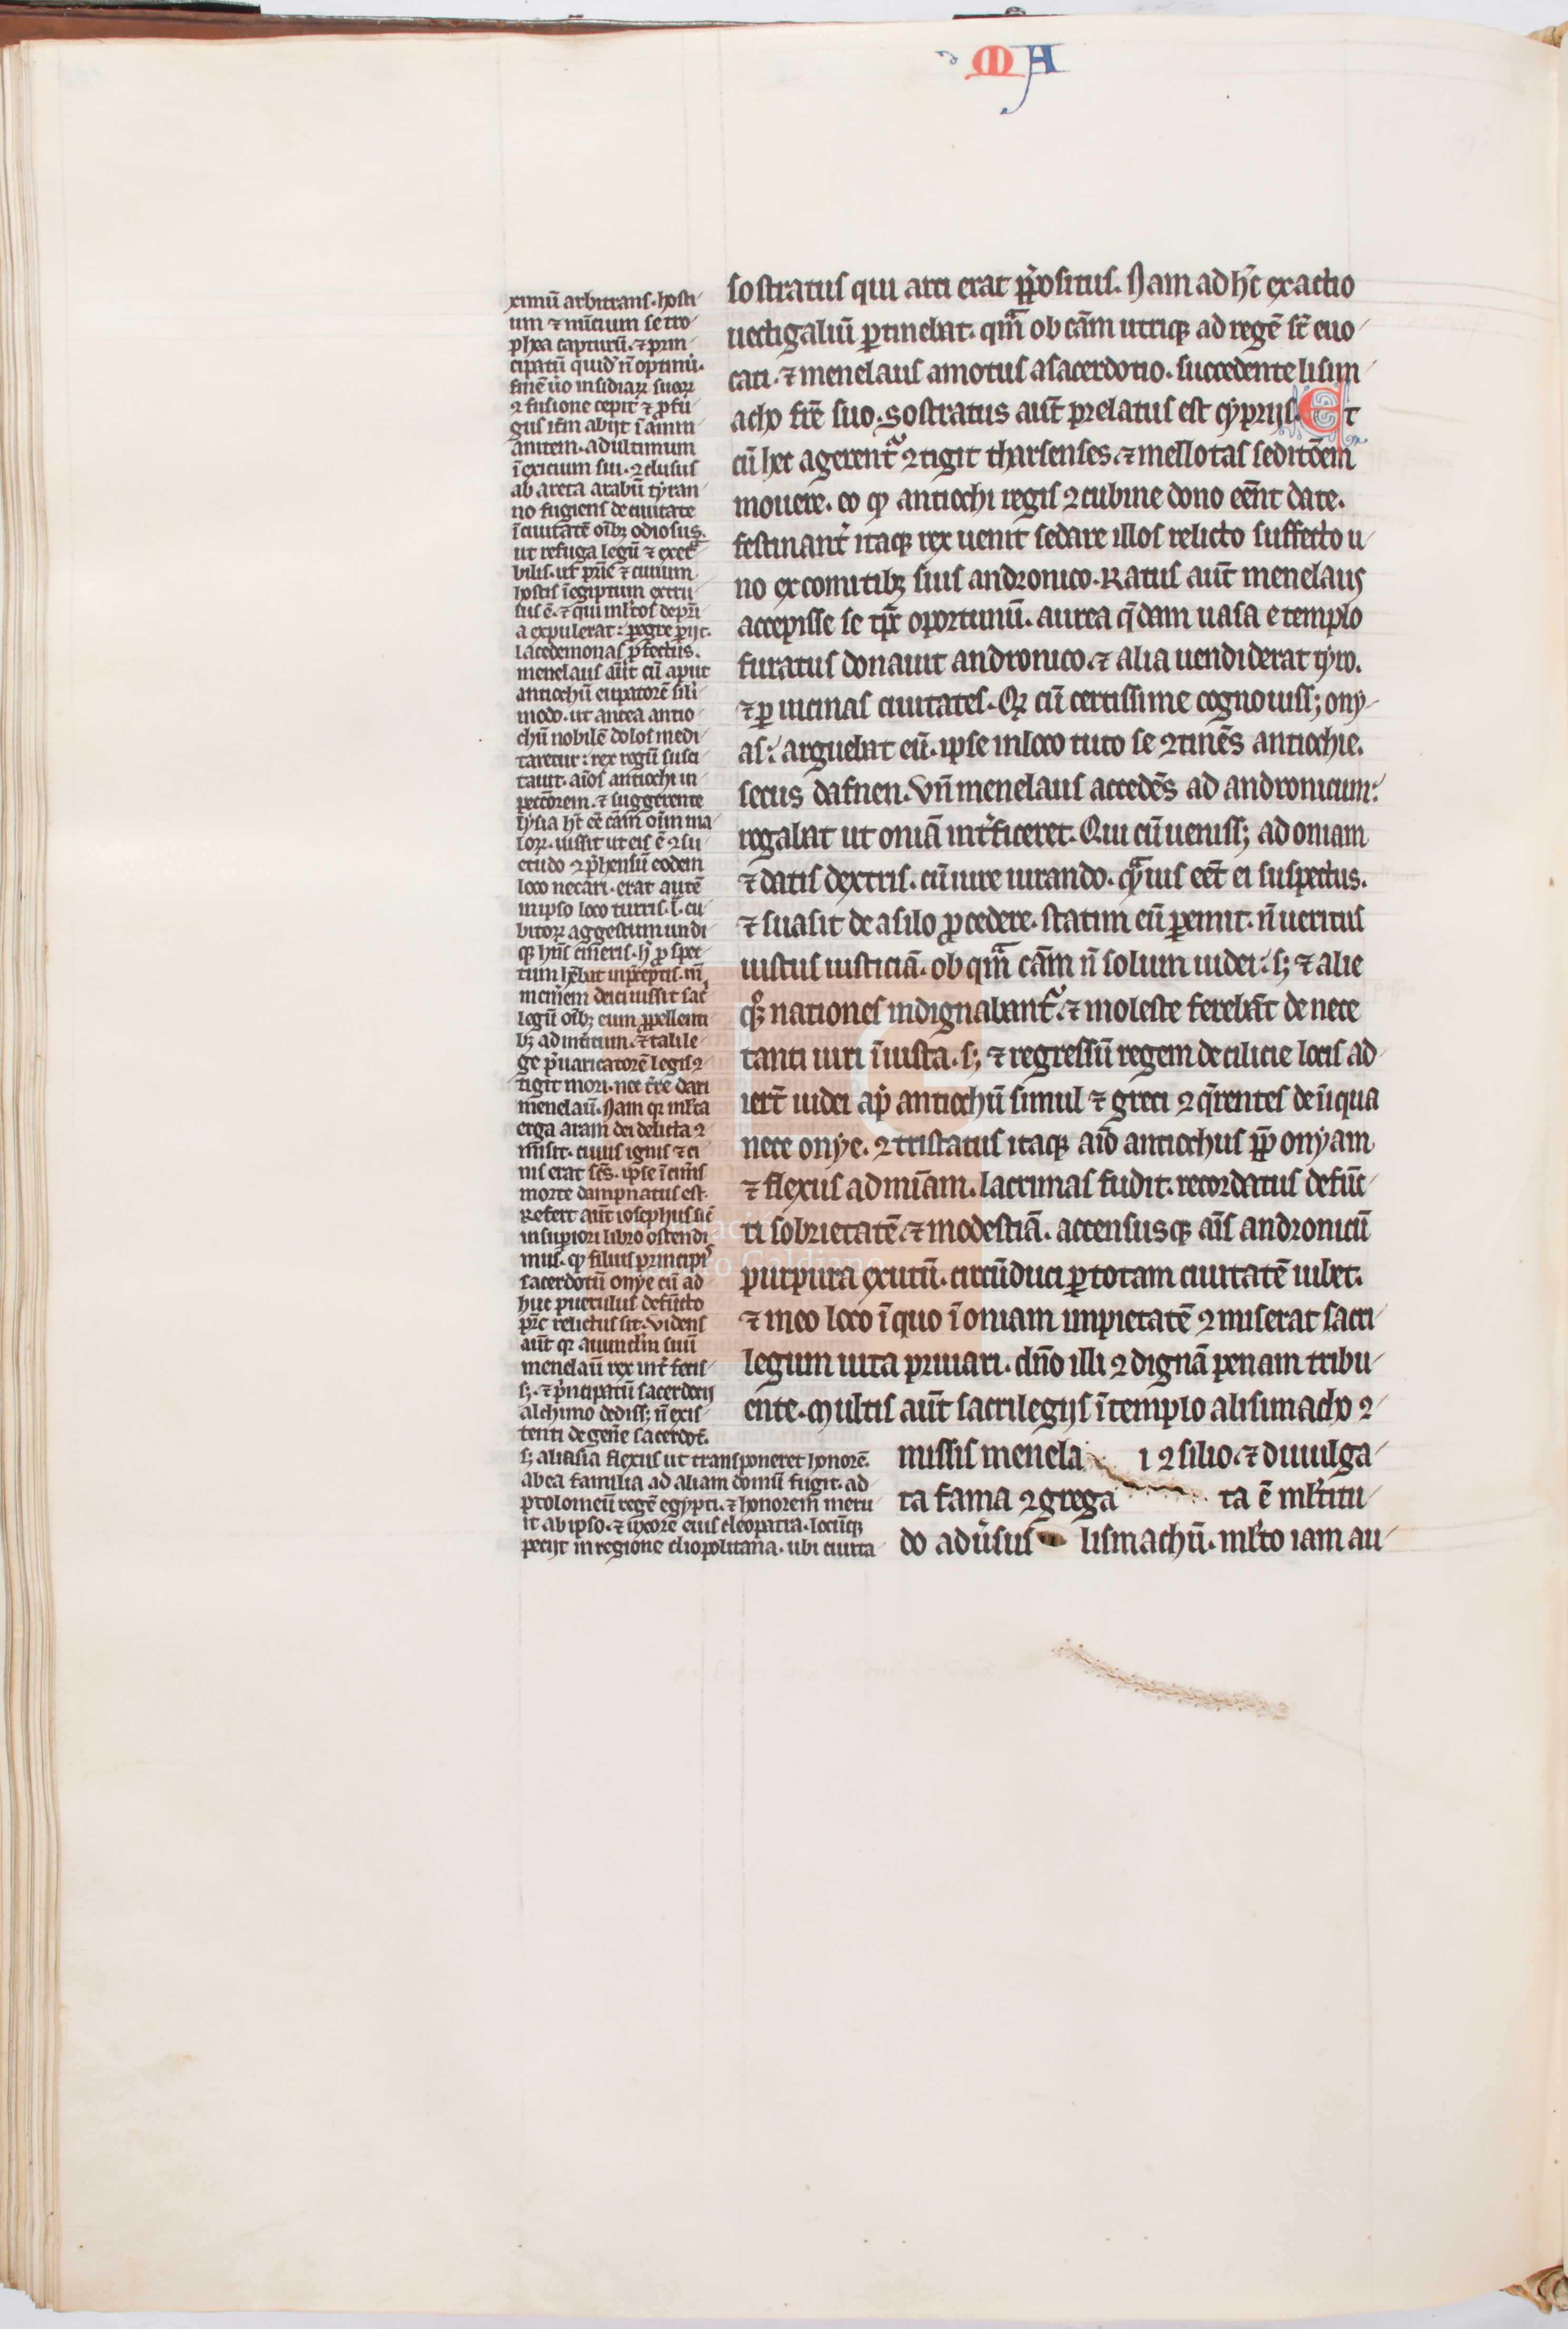 MA
ximū arbitrans. hosti
um ⁊ nūcium se tro
phea capturū. ⁊ prin
cipatū quid' n̄ optinu.
finē uō insidiaꝝ suaꝝ
ꝯfusione cepit ⁊ ꝓfu
gus itm̄ abijt ī amm
anitem. ad ultimum
ī exicium sui. ꝯclusus
ab areta arabū tẏran
no fugiens de ciuitate
ī ciuitatē oīb; odiosus.
ut refuga legū ⁊ execͣ
bilis. ut pr̄ie ⁊ ciuium
hostis ī egiptum extru
sus ē. ⁊ qui ml'tos de pr̄i
a expulerat: pegre ꝑijt.
lacedemonas ꝓfectus.
menelaus aūt cū aput
antiochū eupatorē sili
modo. ut antea antio
chū nobilē dolos medi
taretur: rex regū susci
tauit. aīos antiochi in
peccōrem. ⁊ suggerente
lẏsia hc̄ ēē cām oīm ma
loꝝ. iussit ut eis ē ꝯsu
etudo ꝯpͥhensū eodem
loco necari. erat autē
in ipso loco turris. l. cu
bitoꝝ aggestum undi
qꝫ hn̄s cineris. h' ꝓspec
tum hēbat in pͥceptis. in̄
in cin'em deici iussit sac'
legū oīb; eum ꝓpellenti
b; ad intitum. ⁊ tali le
ge pͥuaricatorē legis ꝯ
tigit mori. nec tr̄e dari
menelaū. Nam qꝛ ml'ta
erga aram dei delicta ꝯ
misit. cuius ignis ⁊ ci
nis erat scs̄. ip̄se ī cin'is
morte dampnatus est.
Refert aūt iosephus sic̄
in suꝑiori libro ostendi
mus. ꝙ filius principis
sacerdotū onẏe cū ad
huc puerulus defūcto
pr̄e relictus sit. Videns
aūt qꝛ auunclm̄ suū
menelaū rex int'fecis
s;. ⁊ pͥncipatū sacerdocij
alchimo dediss; n̄ exis
tenti de gen'e sacerdot̄.
s; a lisia flexus ut transponeret honorē.
ab ea familia ad aliam domū fugit. ad
ptolomeū regē egẏpti. ⁊ honorem meru
it ab ipso. ⁊ uxore eius cleopatra. locūqꝫ
pecijt in regione eliopolitana. ubi ciuita
sostratus qui arci erat ꝓpositus. Nam ad hc̄ exactio
uectigaliū ꝑtinebat. qͣm ob cām utriqꝫ ad regē st̄ euo
cati. ⁊ menelaus amotus a sacerdotio. succedente lisim
acho fr̄e suo. Sostratus aūt prelatus est cẏprijs. Et
cū hec agerent' ꝯtigit tharsenses. ⁊ mellotas seditōem
mouere. eo ꝙ antiochi regis ꝯcubine dono eēnt date.
festinant' itaqꝫ rex uenit sedare illos relicto suffecto u
no ex comitib; suis andronico. Ratus aūt menelaus
accepisse se tp̄r oportunū. aurea qͥdam uasa e templo
furatus donauit andronico. ⁊ alia uendiderat tẏro.
⁊ ꝑ uicinas ciuitates. Qꝫ cū certissime cognouiss; onẏ
as: arguebat eū. ipse in loco tuto se ꝯtinēs antiochie.
secus dafnen. Vn̄ menelaus accedēs ad andronicum:
rogabat ut oniā int'ficeret. Qui cū ueniss; ad oniam
⁊ datis dextris. cū iure iurando. qͣuis eēt ei suspectus.
⁊ suasit de asilo ꝓcedere. statim eū ꝑemit. n̄ ueritus
iustus iusticiā. ob qͣm cām n̄ solum iudei: s; ⁊ alie
qꝫ nationes indignabant'. ⁊ moleste ferebāt de nece
tanti uiri īiusta. s; ⁊ regressū regem de cilicie locis ad
iert̄ iudei ap' antiochū simul ⁊ greci ꝯqͥrentes de iniqua
nece onẏe. ꝯtristatus itaqꝫ aīo antiochus ꝓp̄ onẏam
⁊ flexus ad mīam. lacrimas fudit. recordatus defūc
ti sobrietatē ⁊ modestiā. accensusqꝫ aīs andronicū
purpura exutū. circūduci ꝑ totam ciuitatē iubet.
⁊ in eo loco ī quo ī oniam impietatē ꝯmiserat sacri
legum uita priuari. dn̄o illi ꝯdignā penam tribu
ente. Multis aūt sacrilegijs ī templo a lisimacho ꝯ
missis menela i ꝯsilio. ⁊ diuulga
ta fama ꝯgrega ta ē ml'titu
do adu'sus lismachū. ml'to iam au